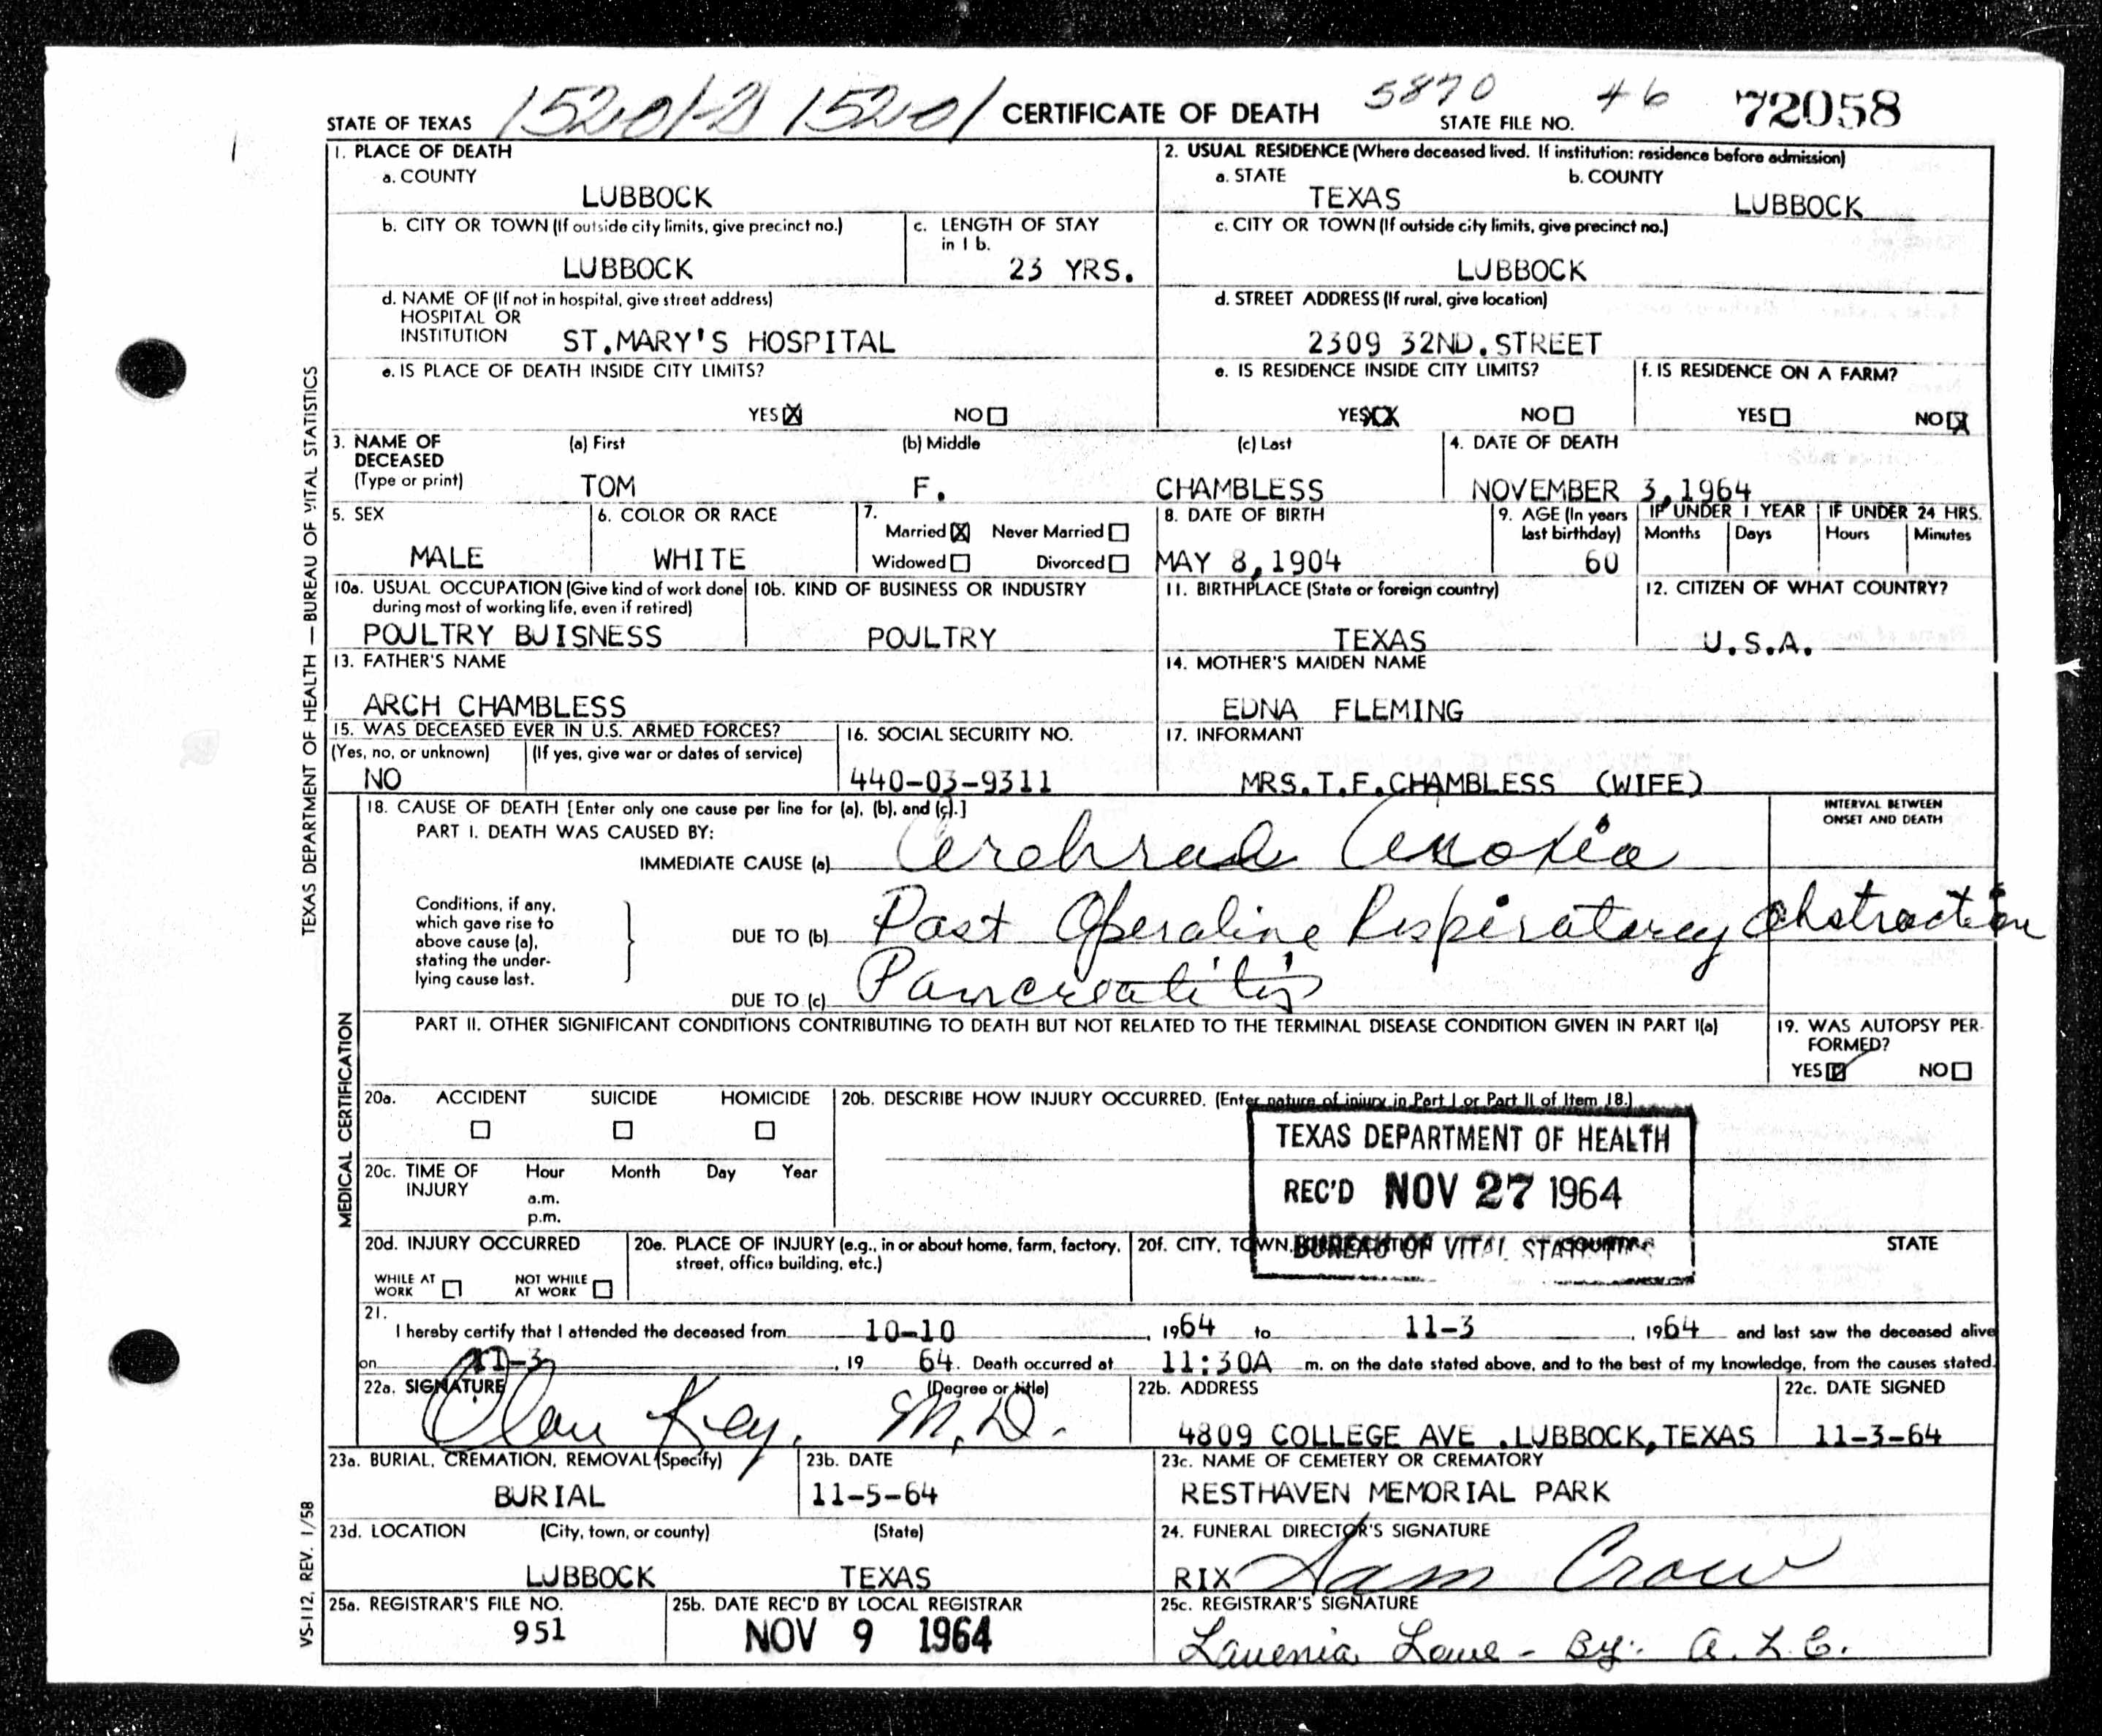 STATE OF TEXAS 15201-2 15201 CERTIFICATE OF DEATH 5870 STATE FILE NO. 46 72058
1. PLACE OF DEATH
a. COUNTY
LUBBOCK
2. USUAL RESIDENCE (Where deceased lived. If institution: residence before admission)
a. STATE b. COUNTY
TEXAS LUBBOCK
b. CITY OR TOWN (If outside city limits, give precinct no.)
LUBBOCK
c. LENGTH OF STAY
in 1 b.
23 YRS.
c. CITY OR TOWN (If outside city limits, give precinct no.)
LUBBOCK
d. NAME OF (If not in hospital, give street address)
HOSPITAL OR
INSTITUTION ST.MARY'S HOSPITAL
d. STREET ADDRESS (If rural, give location)
2309 32ND.STREET
e. IS PLACE OF DEATH INSIDE CITY LIMITS?
YES X NO
e. IS RESIDENCE INSIDE CITY LIMITS?
YES XX NO
f. IS RESIDENCE ON A FARM?
YES NO X
3. NAME OF
DECEASED
(Type or print)
(a) First (b) Middle (c) Last
TOM F. CHAMBLESS
4. DATE OF DEATH
NOVEMBER 3,1964
5. SEX
MALE
6. COLOR OR RACE
WHITE
7.
Married X Never Married
Widowed Divorced
8. DATE OF BIRTH
MAY 8,1904
9. AGE (In years
last birthday)
60
IF UNDER 1 YEAR
Months Days
IF UNDER 24 HRS.
Hours Minutes
10a. USUAL OCCUPATION (Give kind of work done
during most of working life, even if retired)
POULTRY BUISNESS
10b. KIND OF BUSINESS OR INDUSTRY
POULTRY
11. BIRTHPLACE (State or foreign country)
TEXAS
12. CITIZEN OF WHAT COUNTRY?
U.S.A.
13. FATHER'S NAME
ARCH CHAMBLESS
14. MOTHER'S MAIDEN NAME
EDNA FLEMING
15. WAS DECEASED EVER IN U.S. ARMED FORCES?
(Yes, no, or unknown) (If yes, give war or dates of service)
NO
16. SOCIAL SECURITY NO.
440-03-9311
17. INFORMANT
MRS.T.F.CHAMBLESS (WIFE)
18. CAUSE OF DEATH [Enter only one cause per line for (a), (b), and (c).]
PART I. DEATH WAS CAUSED BY:
IMMEDIATE CAUSE (a) Cerebral Anoxia
INTERVAL BETWEEN
ONSET AND DEATH
Conditions, if any,
which gave rise to
above cause (a),
stating the under-
lying cause last.
DUE TO (b) Post Operative Respiratory obstruction
DUE TO (c) Pancreatitis
PART II. OTHER SIGNIFICANT CONDITIONS CONTRIBUTING TO DEATH BUT NOT RELATED TO THE TERMINAL DISEASE CONDITION GIVEN IN PART I(a)
19. WAS AUTOPSY PER-
FORMED?
YES NO
20a. ACCIDENT SUICIDE HOMICIDE
20b. DESCRIBE HOW INJURY OCCURRED. (Enter nature of injury in Part I or Part II of Item 18.)
TEXAS DEPARTMENT OF HEALTH
REC'D NOV 27 1964
BUREAU OF VITAL STATISTICS
20c. TIME OF
INJURY
Hour Month Day Year
a.m.
p.m.
20d. INJURY OCCURRED
WHILE AT
WORK
NOT WHILE
AT WORK
20e. PLACE OF INJURY (e.g., in or about home, farm, factory,
street, office building, etc.)
20f. CITY, TOWN, STATE
21.
I hereby certify that I attended the deceased from 10-10, 1964 to 11-3, 1964 and last saw the deceased alive
on 11-3, 19 64. Death occurred at 11:30A m. on the date stated above, and to the best of my knowledge, from the causes stated.
22a. SIGNATURE (Degree or title)
Olan Key, M.D.
22b. ADDRESS
4809 COLLEGE AVE .LUBBOCK,TEXAS
22c. DATE SIGNED
11-3-64
23a. BURIAL, CREMATION, REMOVAL (Specify)
BURIAL
23b. DATE
11-5-64
23c. NAME OF CEMETERY OR CREMATORY
RESTHAVEN MEMORIAL PARK
23d. LOCATION (City, town, or county) (State)
LUBBOCK TEXAS
24. FUNERAL DIRECTOR'S SIGNATURE
RIX Sam Crow
25a. REGISTRAR'S FILE NO.
951
25b. DATE REC'D BY LOCAL REGISTRAR
NOV 9 1964
25c. REGISTRAR'S SIGNATURE
Lavenia Lowe - By: A. L. C.
TEXAS DEPARTMENT OF HEALTH — BUREAU OF VITAL STATISTICS
MEDICAL CERTIFICATION
VS-112, REV. 1/58